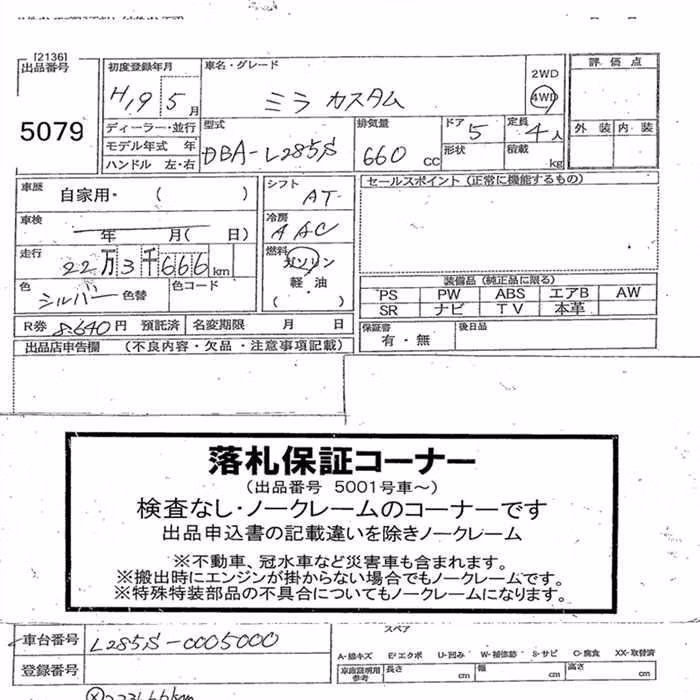 [2136]
出品番号
5079
初度登録年月
H19 5月
車名・グレード
ミラ カスタム
2WD
4WD
評価点
外装 内装
ディーラー・並行
モデル年式 年
ハンドル 左・右
型式
DBA-L285S
排気量
660 cc
ドア 5
形状
定員 4人
積載 kg
車歴 自家用・ ( )
車検
年 月( 日)
走行
22万3千666km
色 シルバー 色替
色コード
シフト AT
冷房 AAC
燃料 ガソリン
軽・油
( )
セールスポイント(正常に機能するもの)
装備品(純正品に限る)
PS PW ABS エアB AW
SR ナビ TV 本革
R券 8,640円 預託済 名変期限 月 日
保証書 有・無
後日品
出品店申告欄 (不良内容・欠品・注意事項記載)
落札保証コーナー
(出品番号 5001号車～)
検査なし・ノークレームのコーナーです
出品申込書の記載違いを除きノークレーム
※不動車、冠水車など災害車も含まれます。
※搬出時にエンジンが掛からない場合でもノークレームです。
※特殊特装部品の不具合についてもノークレームになります。
車台番号 L285S-0005000
登録番号
スペア
A-線キズ E-エクボ U-凹み W-補修跡 S-サビ C-腐食 XX-取替済
車庫証明用参考 長さ cm 幅 cm 高さ cm